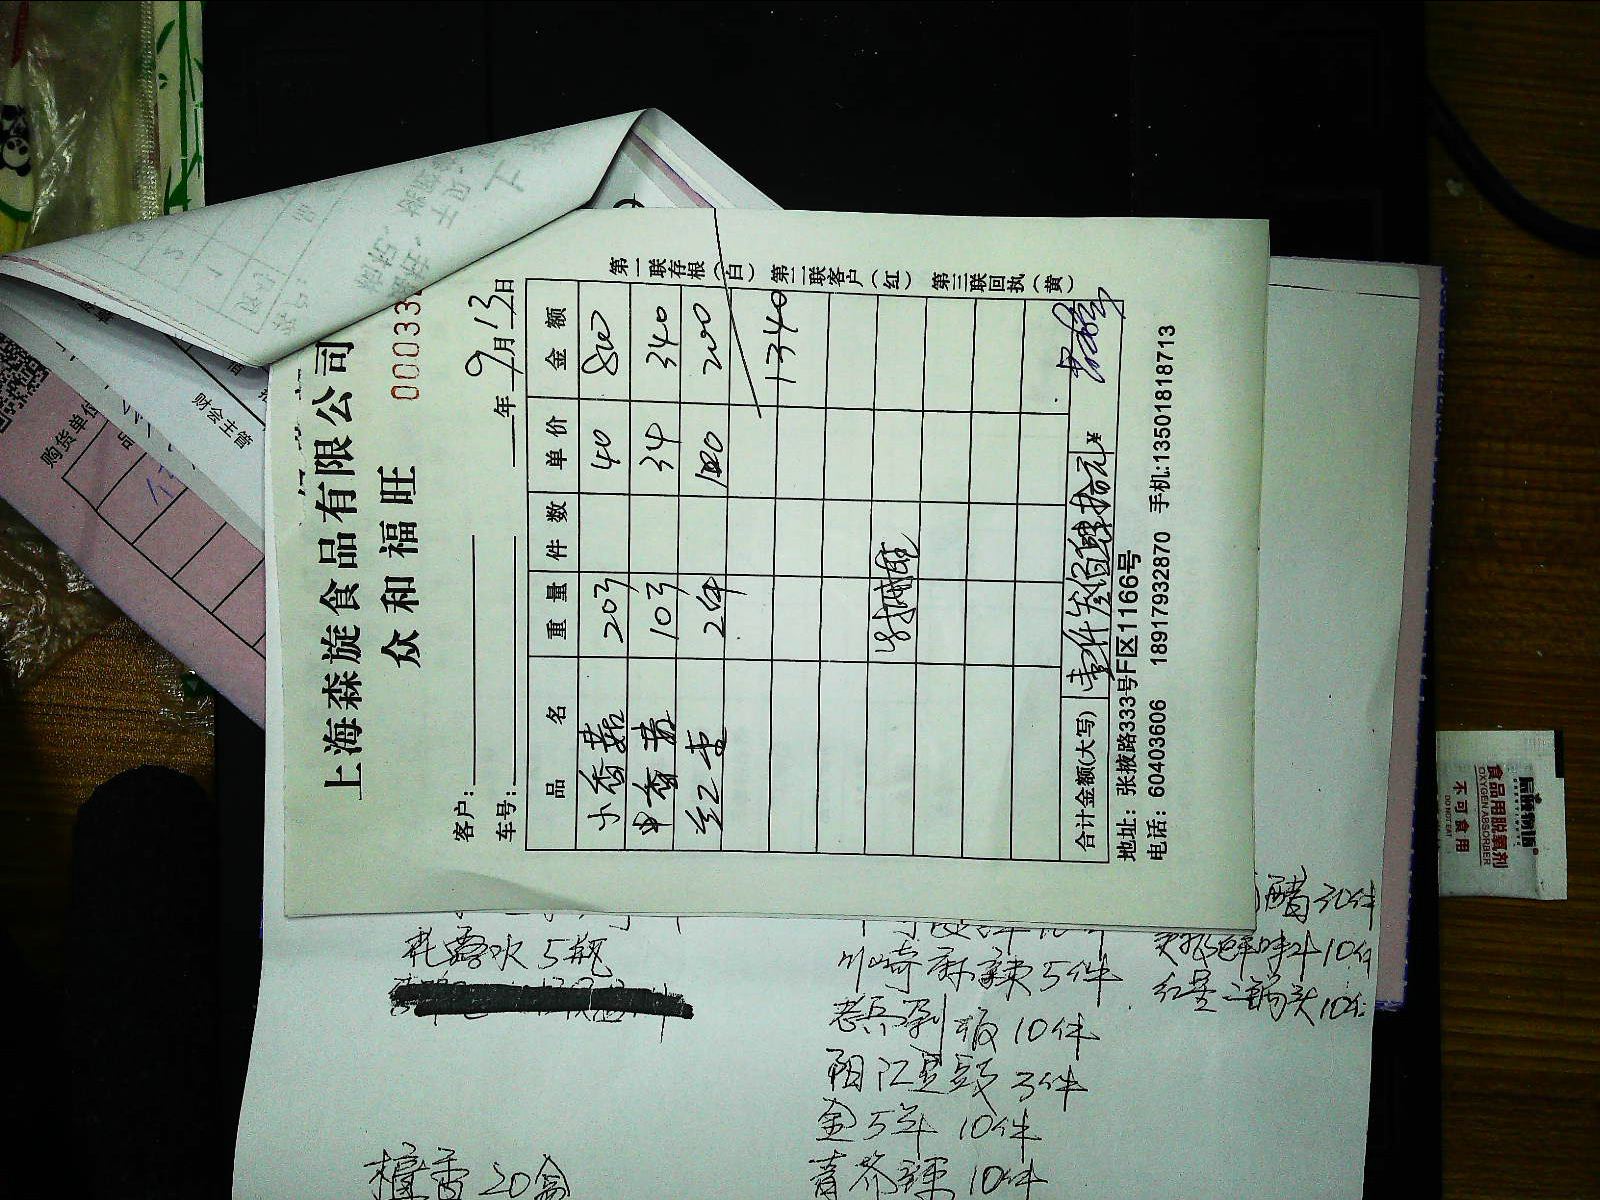 上海森旋食品有限公司
众和福旺
00033
客户:
车号:
年 9月13日
品名 重量 件数 单价 金额
小香菇 20斤 40 800
中香菇 10斤 34 340
红枣 2件 100 200
1340
合计金额(大写) 壹仟叁佰肆拾元 ¥
地址: 张掖路333号F区1166号
电话: 60403606 18917932870 手机:13501818713
第一联存根(白) 第二联客户(红) 第三联回执(黄)
购货单位
财会主管
5瓶
川崎麻辣5件
10件
阳江豆豉3件
金5年 10件
青芥辣10件
檀香20盒
醋30件
10件
红星二锅头10件
食品用脱氧剂
OXYGEN ABSORBER
不可食用
DO NOT EAT